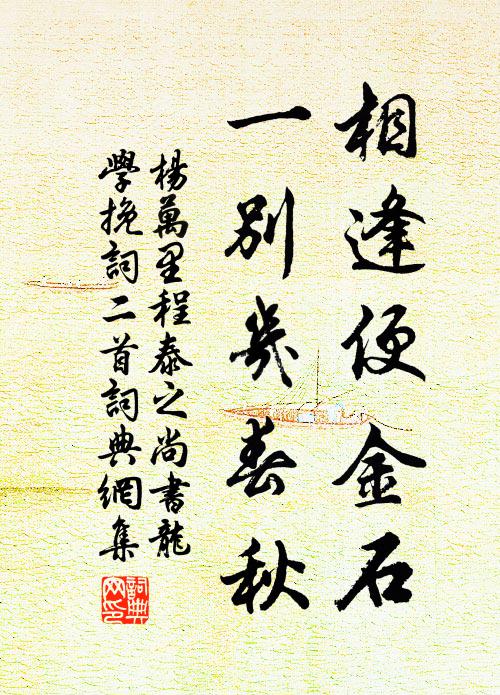 相逢便金石
一別幾春秋
楊萬里程泰之尚書龍
學挽詞二首詞典網集
詞典
网印